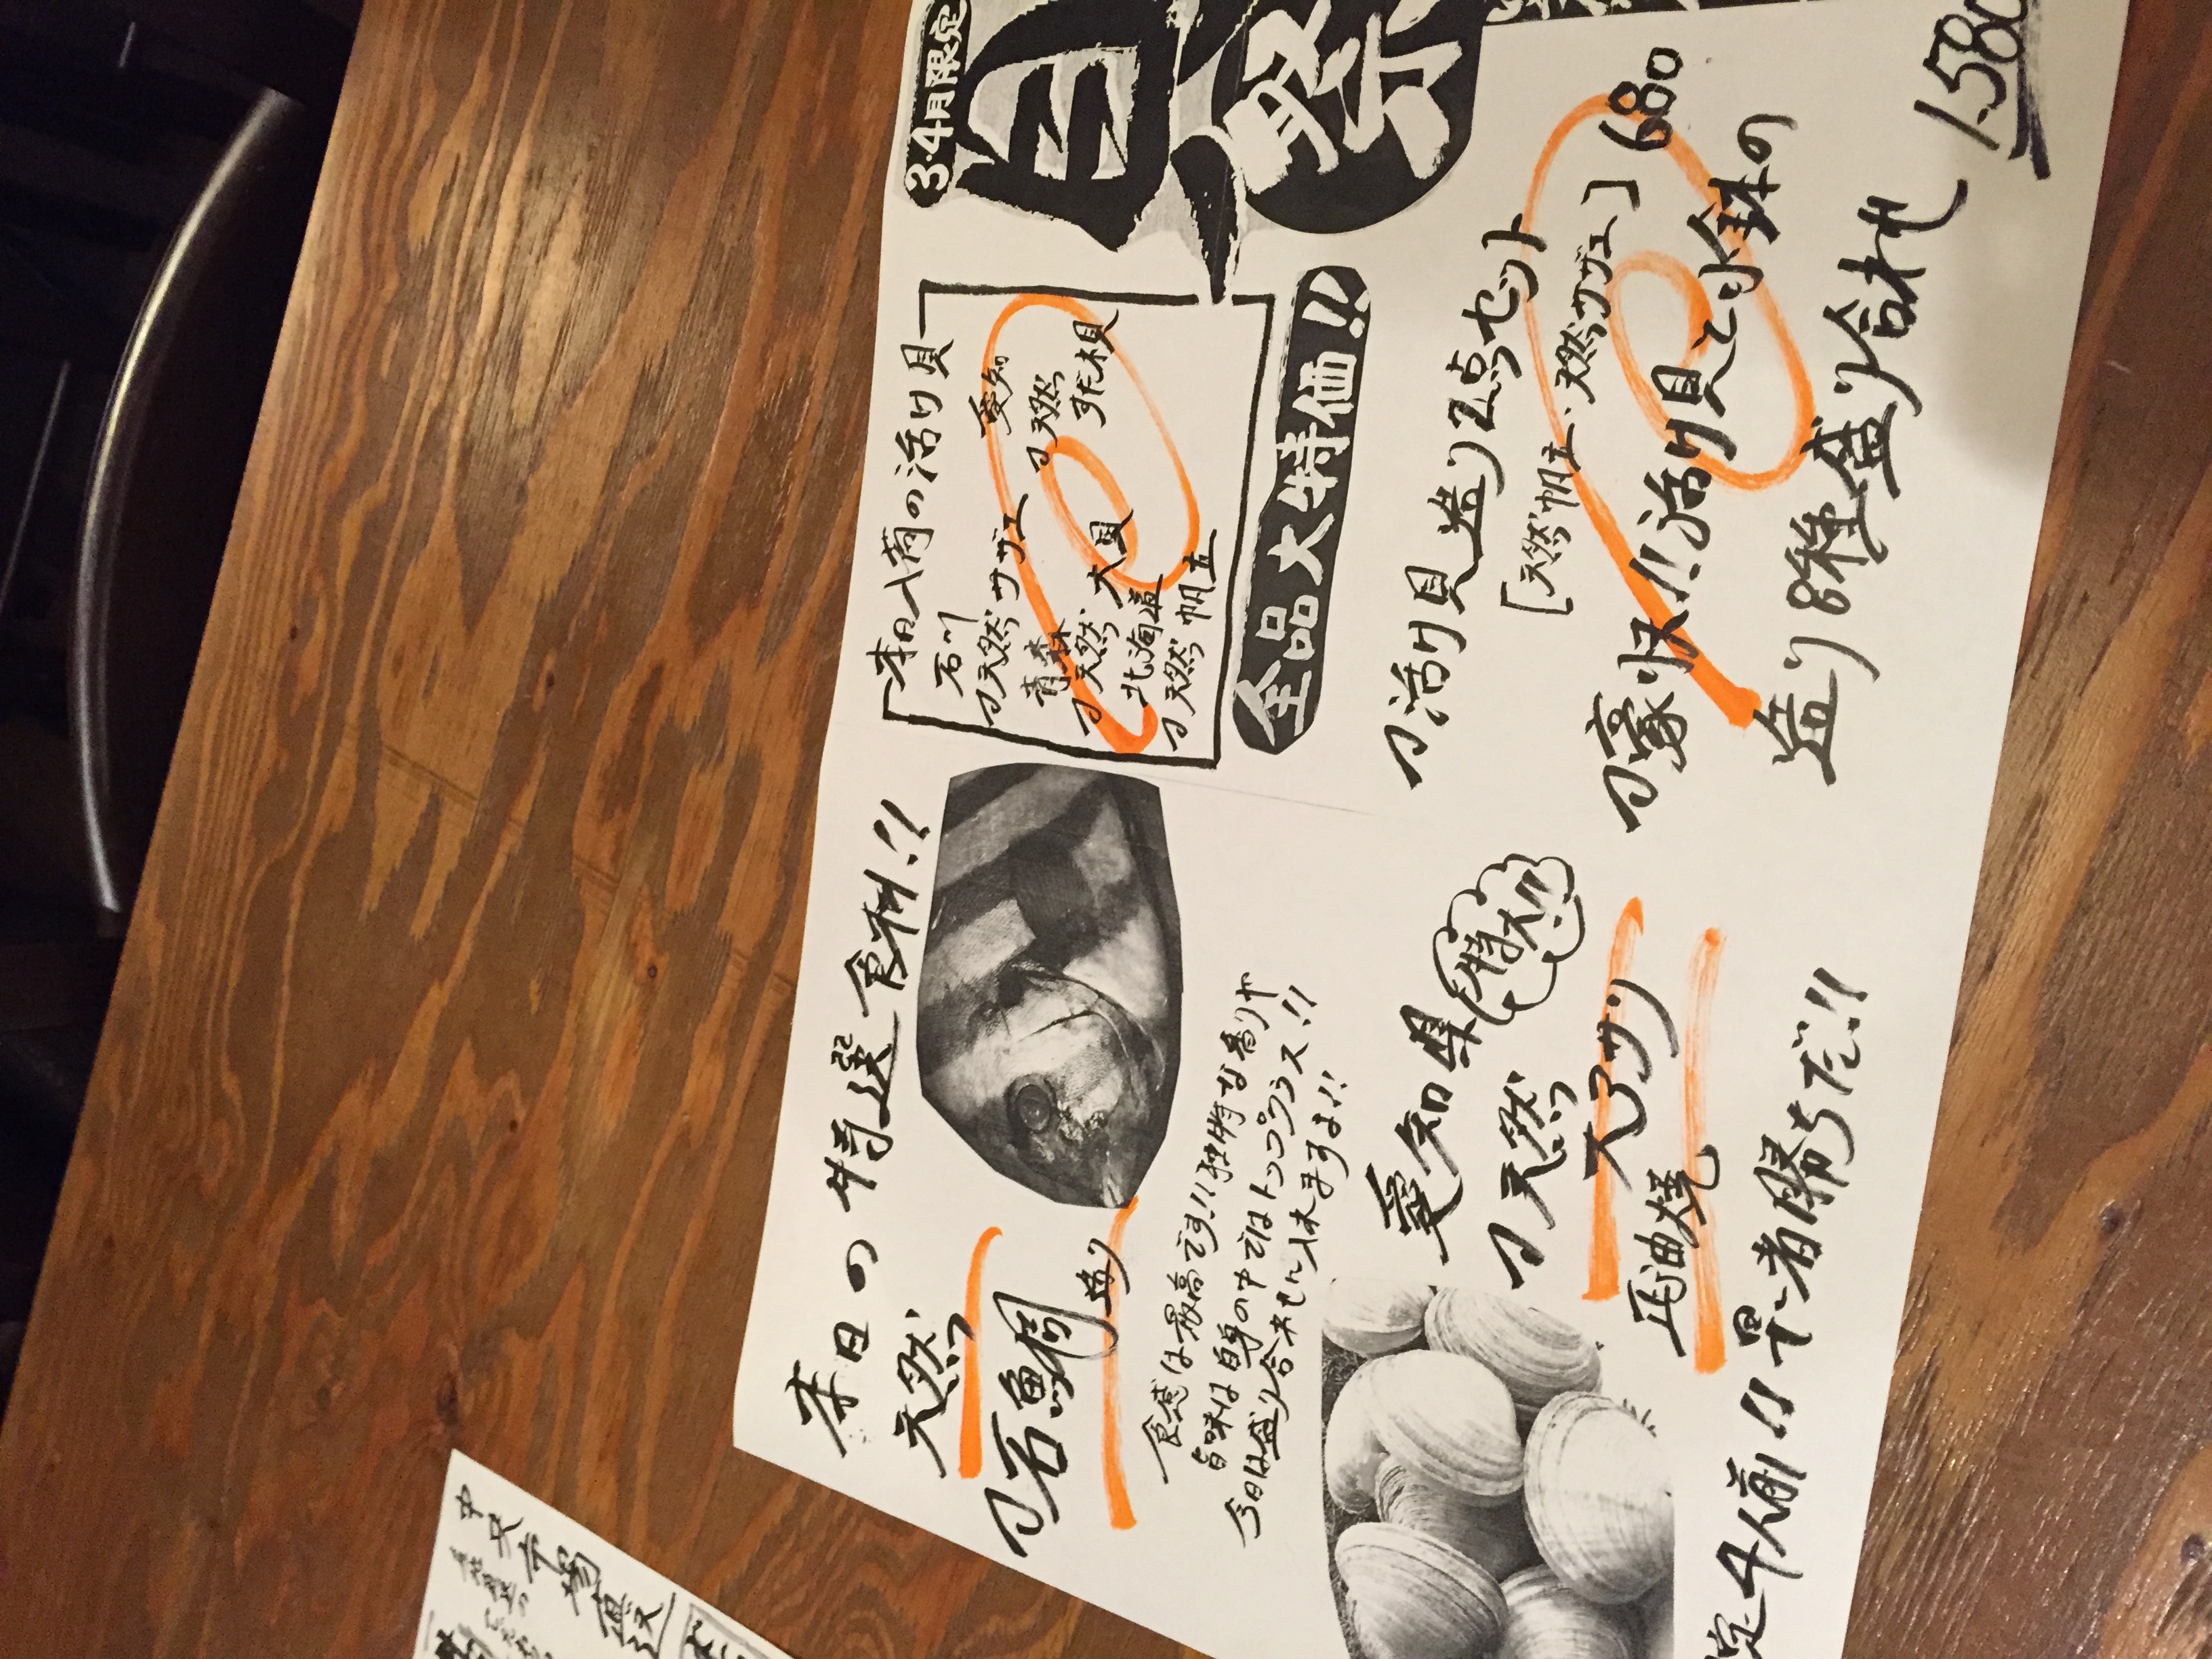 本日の特選食材!!
天然
石鯛造り
食感は最高です!!独特な香りや
旨味は白身の中ではトップクラス!!
今日は盛り合わせに入れますよ!!
愛知県
特大!!
天然
大アサリ
正油焼
定4人前!!早い者勝ちだ!!
3・4月限定
貝
祭
本日入荷の活け貝
石川
天然サザエ
愛知
天然
すだれ貝
青森
天然大貝
北海道
天然帆立
全品大特価!!
活け貝造り2点セット
[天然帆立、天然サザエ] 680
豪快!!活け貝と小鉢の
造り8種盛り合わせ 1.580
中央市場直送